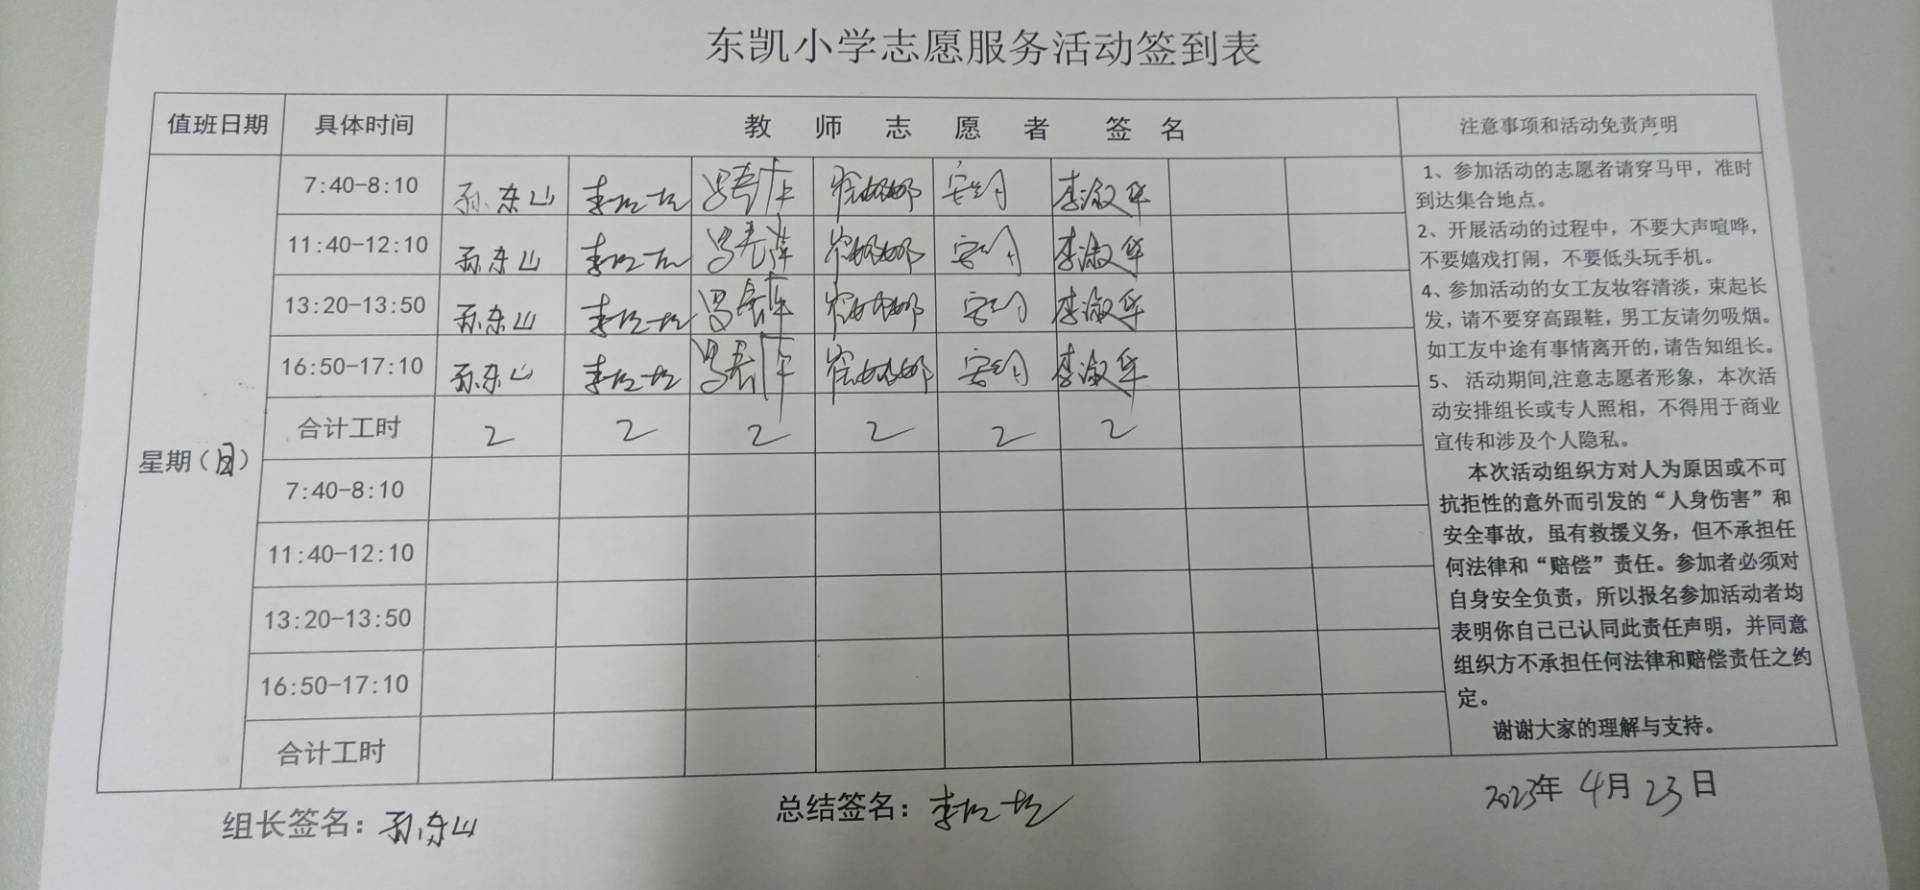 东凯小学志愿服务活动签到表
值班日期 具体时间 教师志愿者签名 注意事项和活动免责声明
7:40-8:10 孙东山 崔娜娜 李淑华
11:40-12:10 孙东山 崔娜娜 李淑华
13:20-13:50 孙东山 崔娜娜 李淑华
16:50-17:10 孙东山 崔娜娜 李淑华
合计工时 2 2 2 2 2 2
星期(日)
7:40-8:10
11:40-12:10
13:20-13:50
16:50-17:10
合计工时
1、参加活动的志愿者请穿马甲，准时
到达集合地点。
2、开展活动的过程中，不要大声喧哗，
不要嬉戏打闹，不要低头玩手机。
4、参加活动的女工友妆容清淡，束起长
发，请不要穿高跟鞋，男工友请勿吸烟。
如工友中途有事情离开的,请告知组长。
5、 活动期间,注意志愿者形象，本次活
动安排组长或专人照相，不得用于商业
宣传和涉及个人隐私。
本次活动组织方对人为原因或不可
抗拒性的意外而引发的“人身伤害”和
安全事故，虽有救援义务，但不承担任
何法律和“赔偿”责任。参加者必须对
自身安全负责，所以报名参加活动者均
表明你自己已认同此责任声明，并同意
组织方不承担任何法律和赔偿责任之约
定。
谢谢大家的理解与支持。
组长签名：孙东山 总结签名： 2023年4月23日